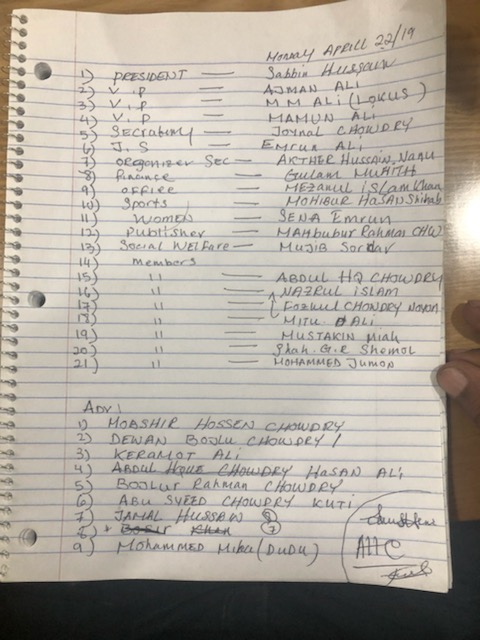 Monday Aprill 22/19
1) PRESIDENT — Sabbir Hussain
2) V.P — AJMAN ALI
3) V.P — M M ALI (LOKUS)
4) V.P — MAMUN ALI
5) Secratary — Joynal CHOWDRY
6) J.S — Emrun ALI
7) Organizer Sec — AKTHER HUSSAIN
8) Finance — Gulam MUHITH
9) OFFICE — MEZANUL ISLam Khan
10) Sports — MOHIBUR HaSAN Shihab
11) WOMEN — SENA Emrun
12) Publisher — MAHbubur Rahman CHW
13) Social WELFare — MUJIB Sordar
14) members
15) " — ABDUL HQ CHOWDRY
16) " — NAZRUL iSLAM
17) " — Fozlul CHONDRY
18) " — MITU ALI
19) " — MUSTAKIN Miah
20) " — Shah. G.R Shemol
21) " — MOHAMMED Jumon
ADV:
1) MOBSHIR HOSSEN CHOWDRY
2) DEWAN BOJLU CHOWDRY
3) KERAMOT ALi
4) ABDUL HQUE CHOWDRY HaSAN ALi
5) BOJLUR Rahman CHOWDRY
6) ABU SYEED CHOWDRY KUTI
7) JAMAL HUSSAIN 8
8) BOSIR Khan 7
9) MOHAMMED Miha (DUDU)
AHC